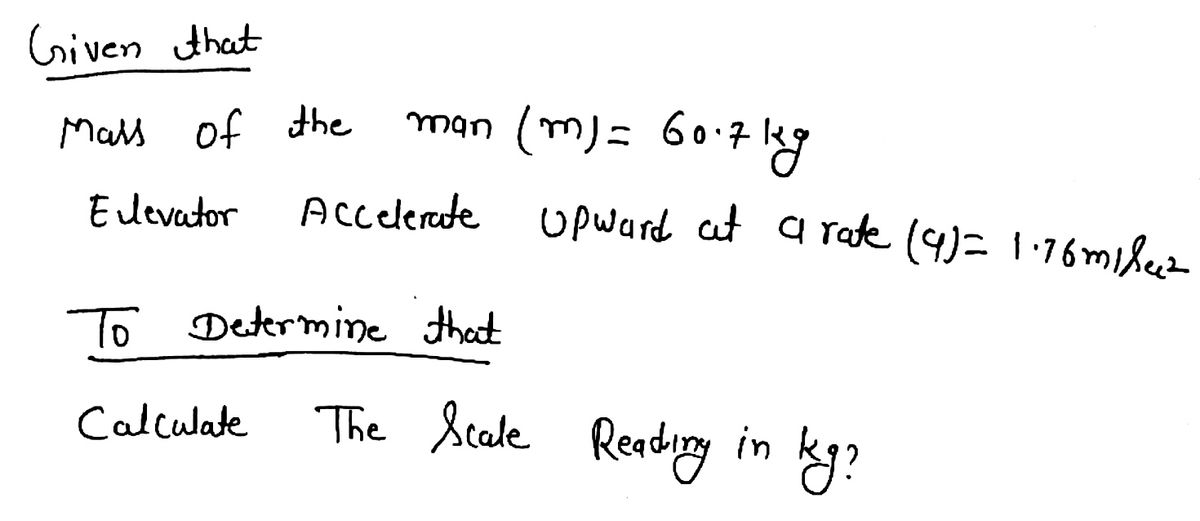 Given that
Mass of the man (m) = 60.7 kg
Elevator Accelerate Upward at a rate (a) = 1.76 m/sec2
To Determine that
Calculate The Scale Reading in kg?